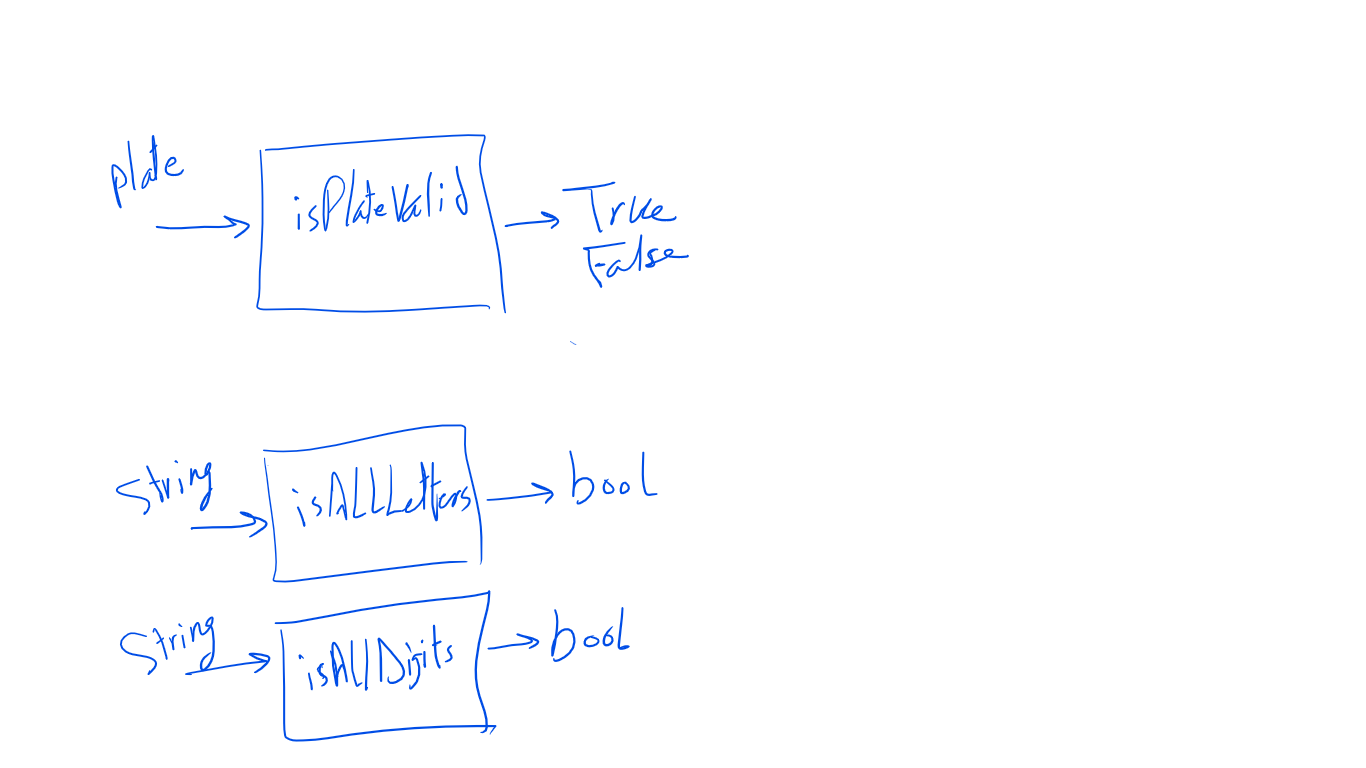 plate
isPlateValid
True
False
String
isALLLetters
bool
String
isAllDigits
bool